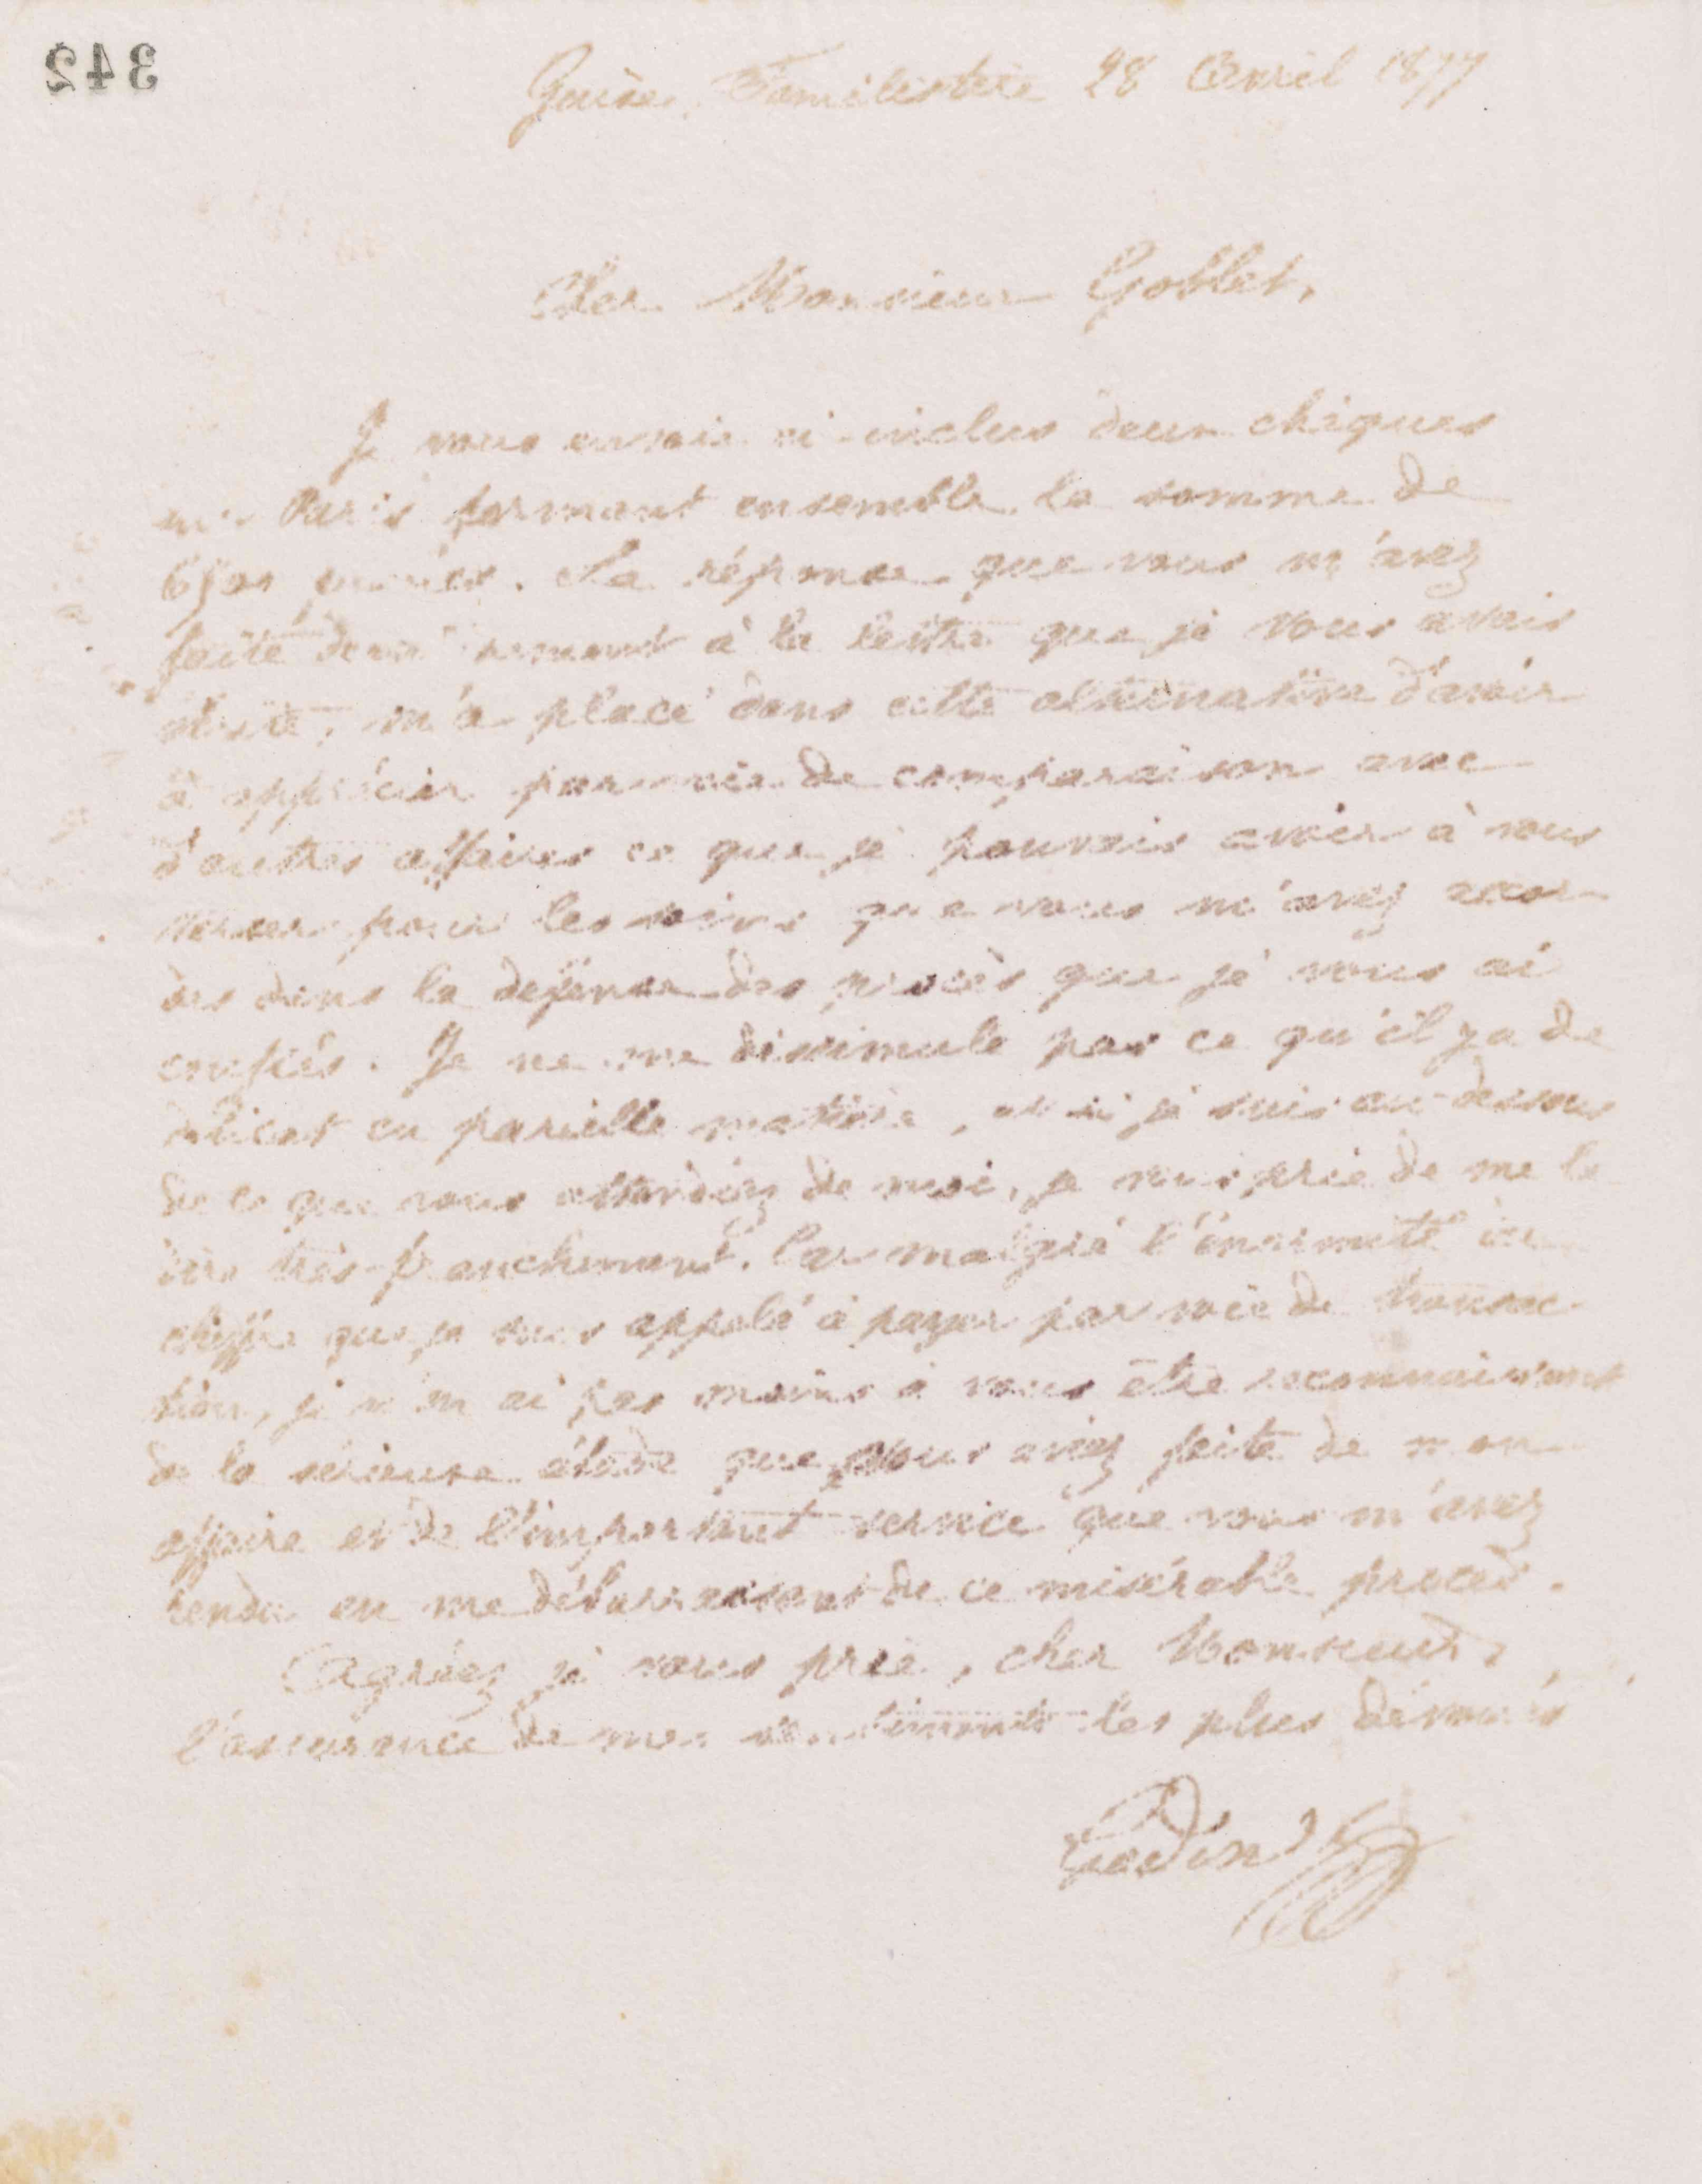 342
Guise, Familistère 28 Avril 1877
Cher Monsieur Goblet,
Je vous envoie ci-inclus deux chèques
sur Paris formant ensemble la somme de
La réponse que vous m'avez
faite dernièrement à la lettre que je vous avais
m'a placé dans cette alternative d'avoir
à apprécier par voie de comparaison avec
d'autres affaires ce que je pouvais avoir à vous
verser pour les soins que vous m'avez accor
dés dans la défense des procès que je vous ai
confiés. Je ne me dissimule pas ce qu'il y a de
délicat en pareille matière, et si je suis au-dessous
de ce que vous attendiez de moi, je vous prie de me le
dire très-franchement. Car malgré l'énormité du
chiffre que je suis appelé à payer par voie de transac
tion, je n'en ai pas moins à vous être reconnaissant
de la sérieuse étude que vous aviez faite de mon
affaire et de l'important service que vous m'avez
rendu en me débarrassant de ce misérable procès.
Agréez je vous prie, cher Monsieur,
l'assurance de mes sentiments les plus dévoués
Godin